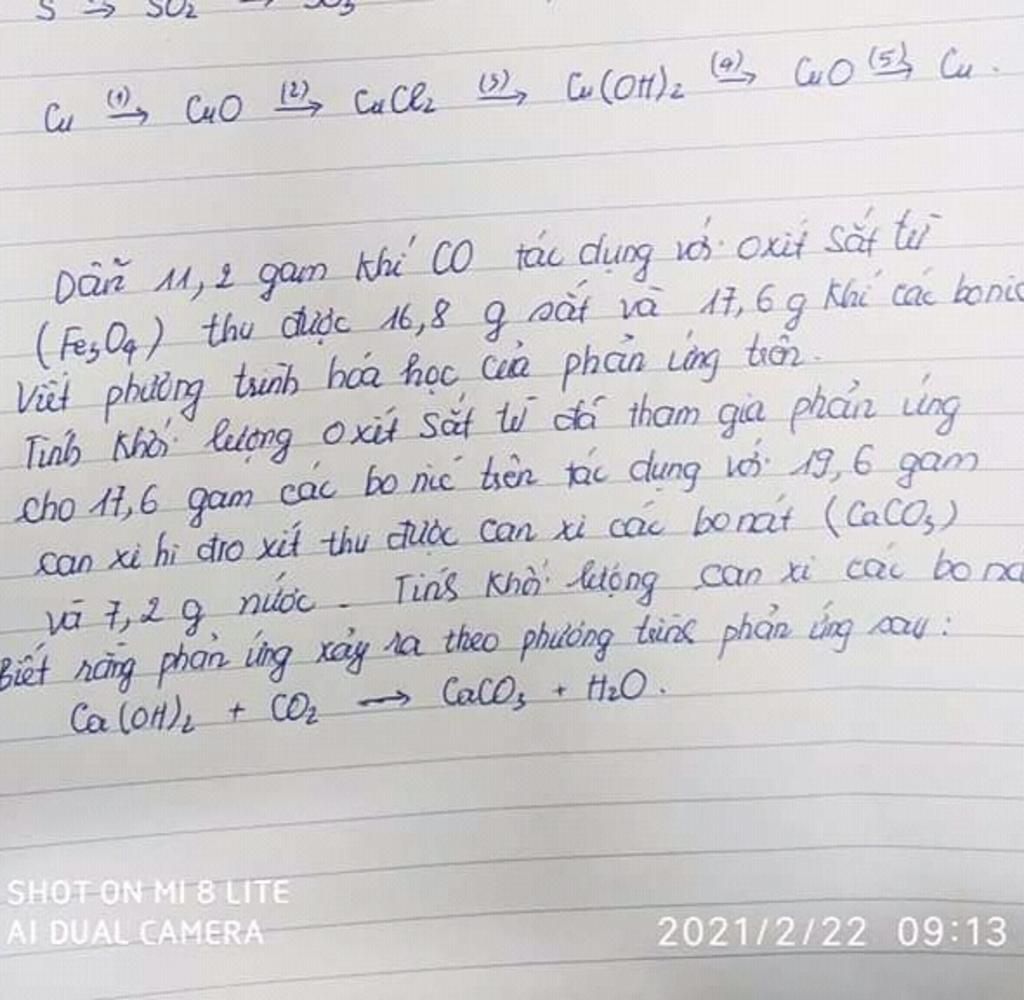 S → SO2 → SO3
Cu (1)→ CuO (2)→ CuCl2 (3)→ Cu(OH)2 (4)→ CuO (5)→ Cu.
Dẫn 11,2 gam khí CO tác dụng với oxit sắt từ
(Fe3O4) thu được 16,8 g sắt và 17,6 g khí các bonic
Viết phương trình hóa học của phản ứng trên.
Tính khối lượng oxit sắt từ đã tham gia phản ứng
cho 17,6 gam các bo nic trên tác dụng với 19,6 gam
can xi hi đro xit thu được can xi các bo nát (CaCO3)
và 7,2 g nước. Tính khối lượng can xi các bo na
Biết rằng phản ứng xảy ra theo phương trình phản ứng sau:
Ca(OH)2 + CO2 → CaCO3 + H2O.
SHOT ON MI 8 LITE
AI DUAL CAMERA
2021/2/22 09:13